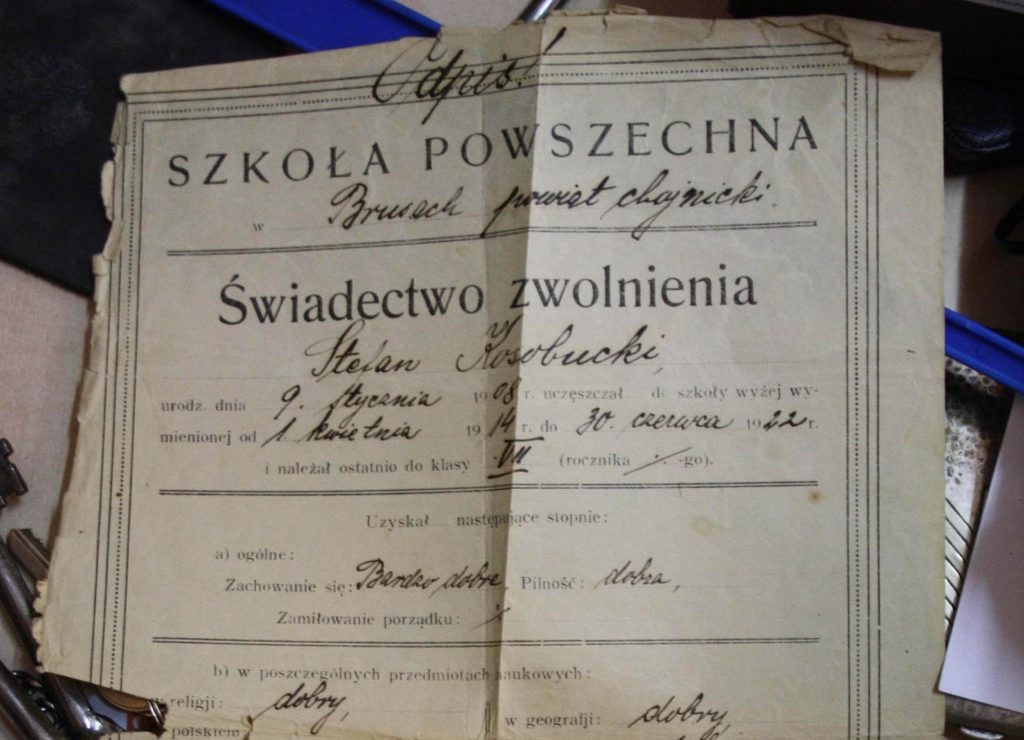 Odpis!
SZKOŁA POWSZECHNA
w Brusach powiat chojnicki.
Świadectwo zwolnienia
Stefan Kosobucki,
urodz. dnia 9. stycznia 1908 r. uczęszczał do szkoły wyżej wy-
mienionej od 1. kwietnia 1914 r. do 30. czerwca 1922 r.
i należał ostatnio do klasy VII (rocznika ·/. -go).
Uzyskał następujące stopnie:
a) ogólne:
Zachowanie się: Bardzo dobre, Pilność: dobra,
Zamiłowanie porządku: ·/.
b) w poszczególnych przedmiotach naukowych:
w religji: dobry, w geografji: dobry,
polskiem